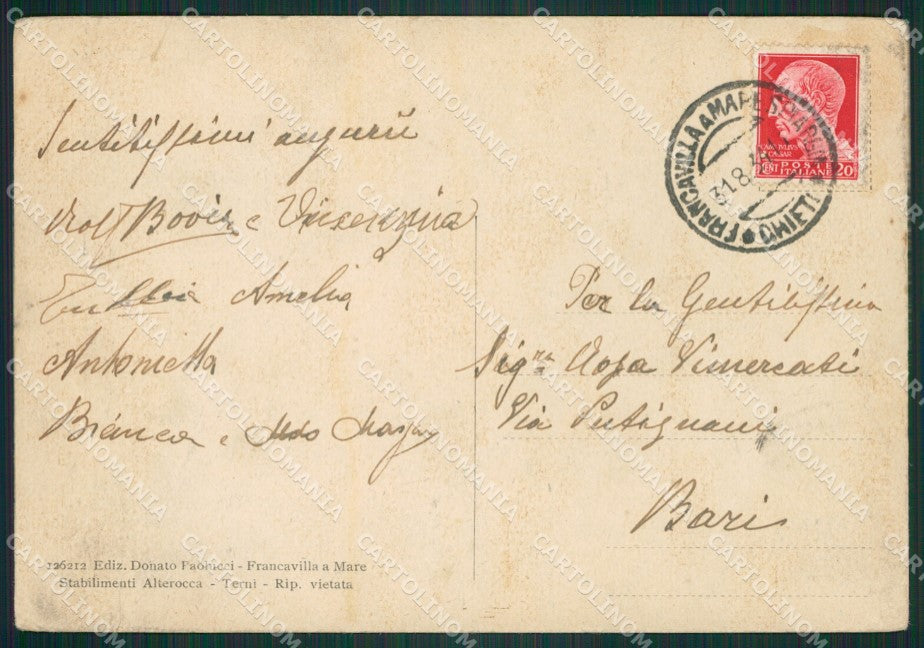 Sentitissimi auguri
Bovir e Vincenzina
Amelia
Antonietta
Bianca e Aldo
FRANCAVILLA A MARE
CHIETI
31.8.
CENT POSTE
ITALIANE 20
Per la Gentilissima
Sig.ra Rosa Vimercati
Via Putignani
Bari
126212 Ediz. Donato Paolucci - Francavilla a Mare
Stabilimenti Alterocca - Terni - Rip. vietata
CARTOLINOMANIA